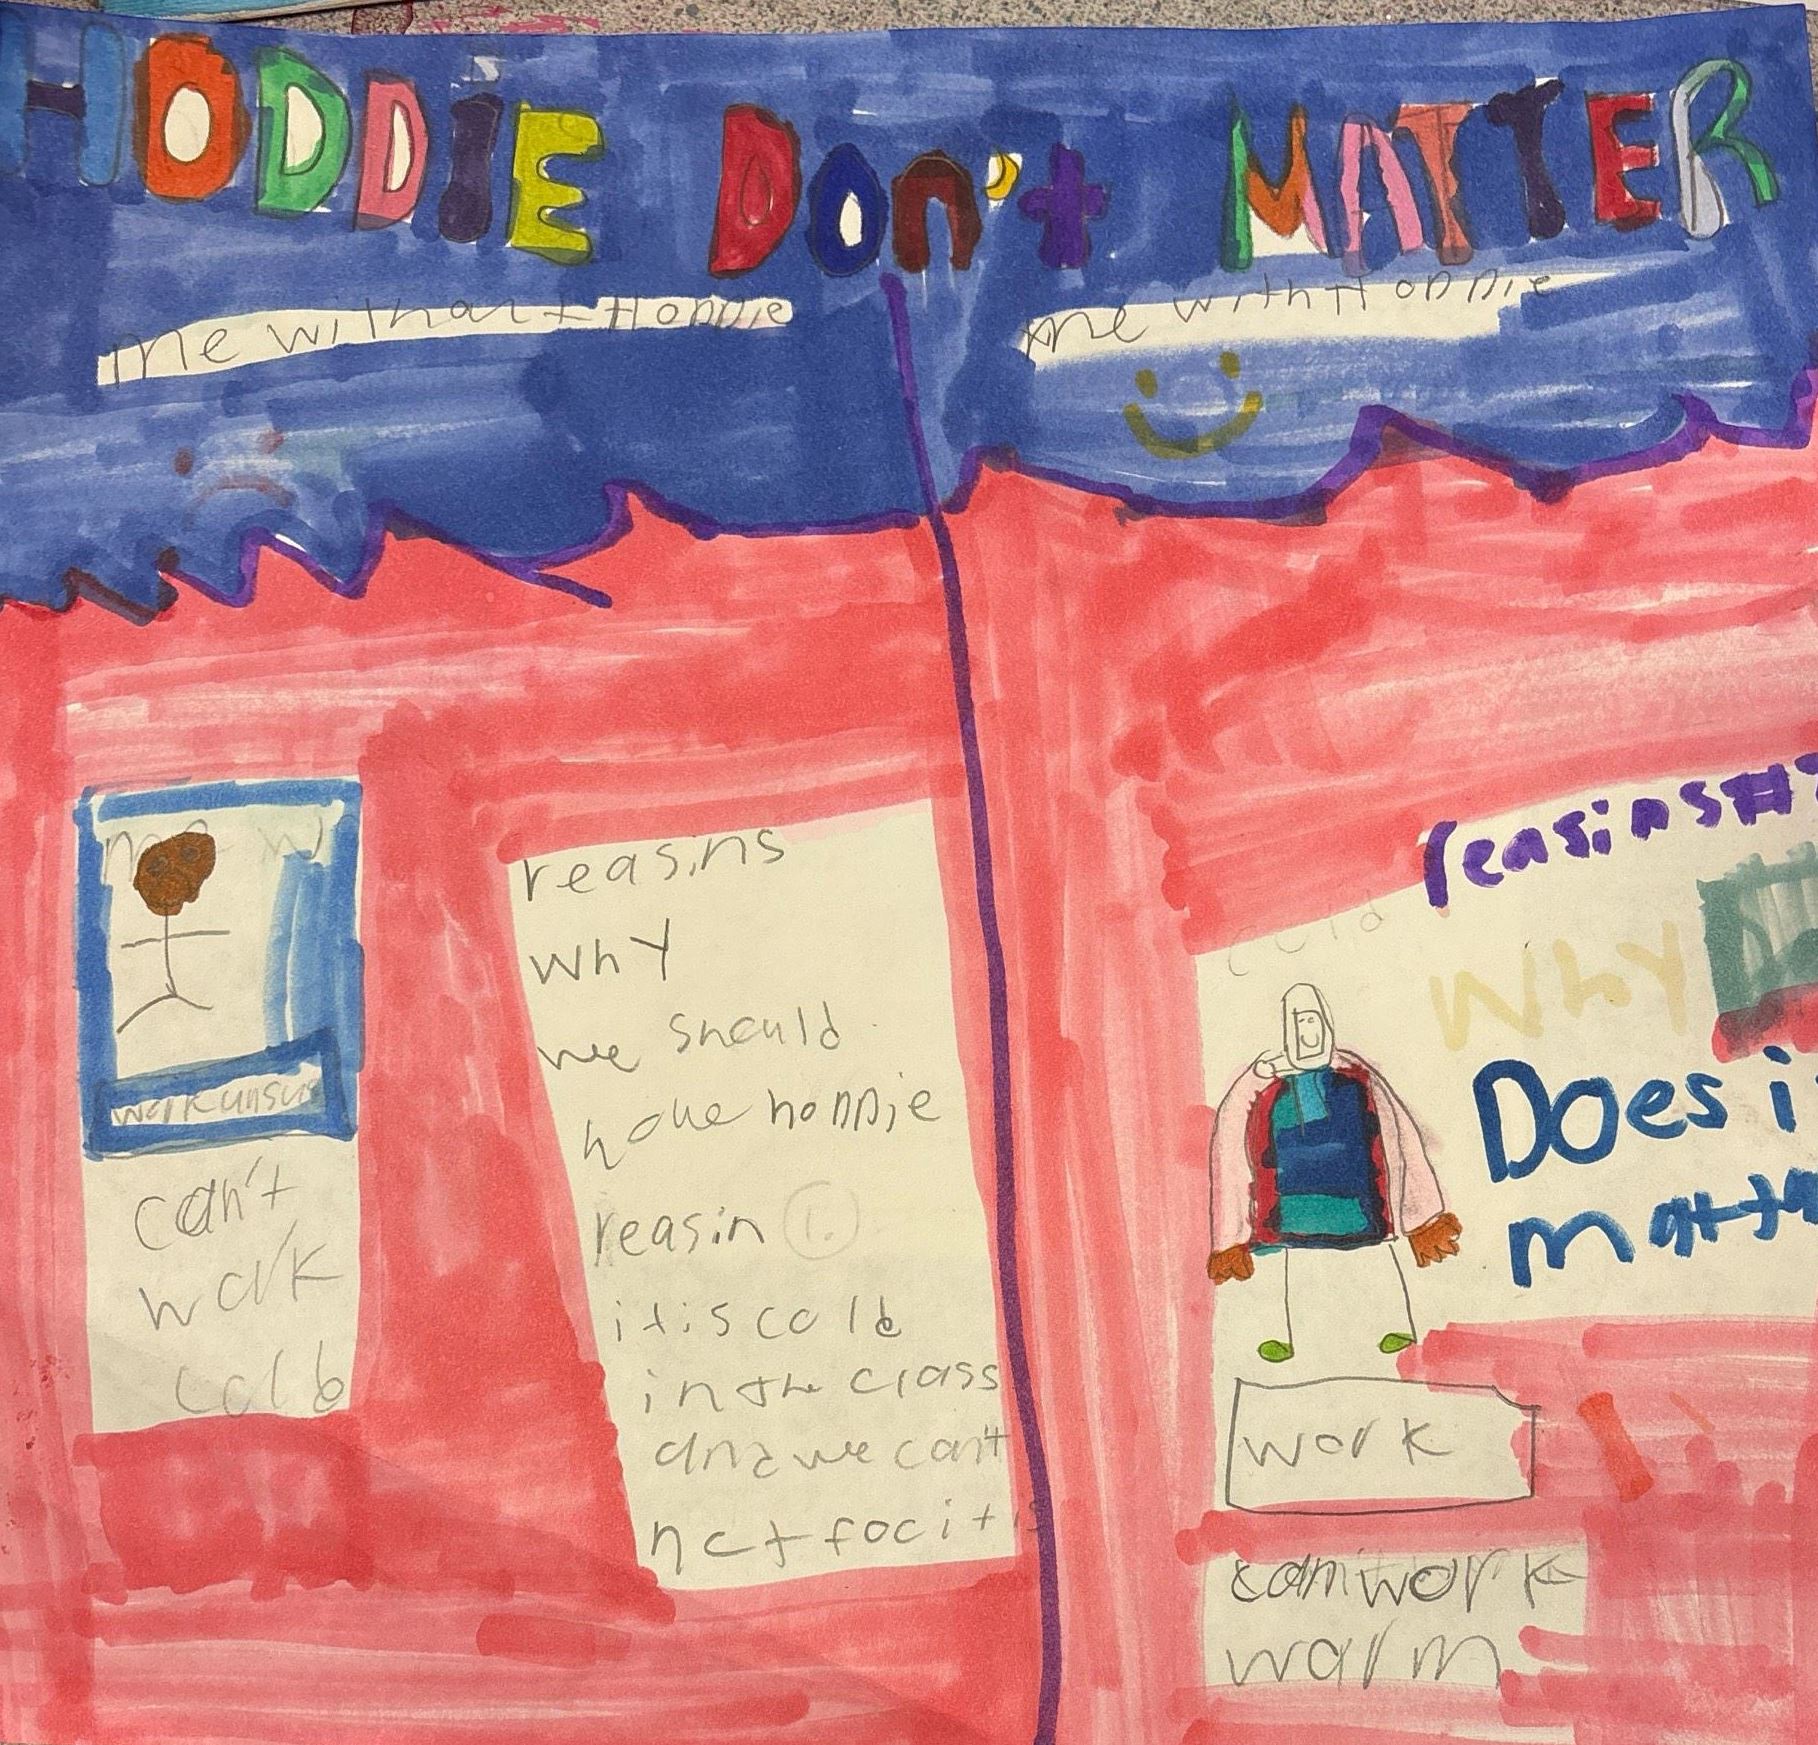 HODDIE Don't MATTER
me withaut HoDDie
me with HoDDie
me w
work
can't
work
cold
reasins
why
we should
have hoDDie
reasin 1.
it is cold
in the class
and we can't
not foc it is
reasins #
cold
why
Does i
matt
work
can work
warm